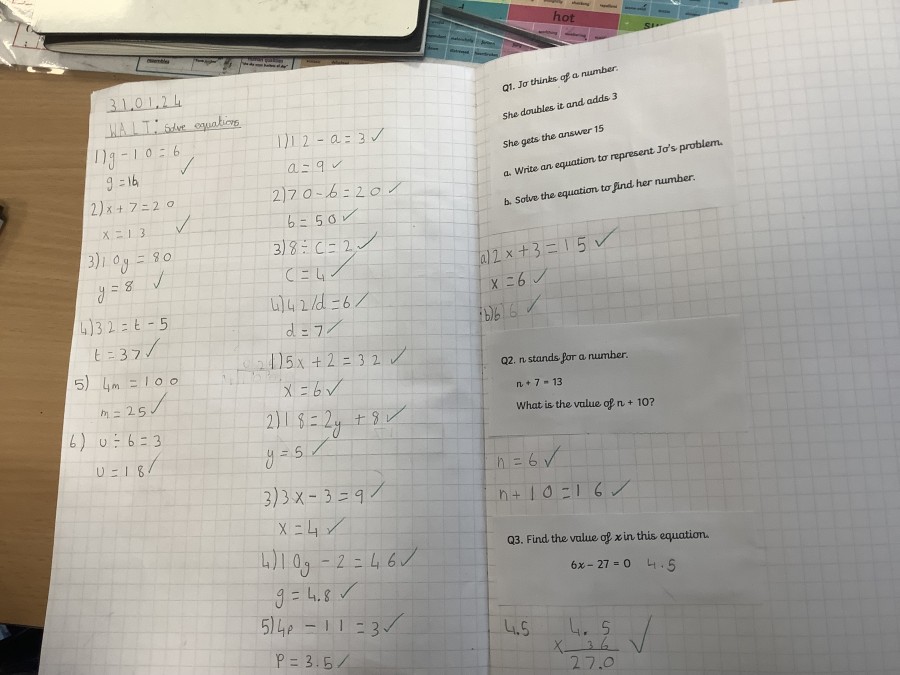 hot
31.01.24
WALT: Solve equations
1) g - 10 = 6
g = 16
2) x + 7 = 20
x = 13
3) 10y = 80
y = 8
4) 32 = t - 5
t = 37
5) 4m = 100
m = 25
6) u ÷ 6 = 3
u = 18
1) 12 - a = 3
a = 9
2) 70 - b = 20
b = 50
3) 8 ÷ C = 2
C = 4
4) 42/d = 6
d = 7
1) 5x + 2 = 32
x = 6
2) 18 = 2y + 8
y = 5
3) 3x - 3 = 9
x = 4
4) 10g - 2 = 46
g = 4.8
5) 4p - 11 = 3
P = 3.5
Q1. Jo thinks of a number.
She doubles it and adds 3
She gets the answer 15
a. Write an equation to represent Jo's problem.
b. Solve the equation to find her number.
a) 2x + 3 = 15
x = 6
b) 6
Q2. n stands for a number.
n + 7 = 13
What is the value of n + 10?
n = 6
n + 10 = 16
Q3. Find the value of x in this equation.
6x – 27 = 0 4.5
4.5 4.5
x 36
27.0